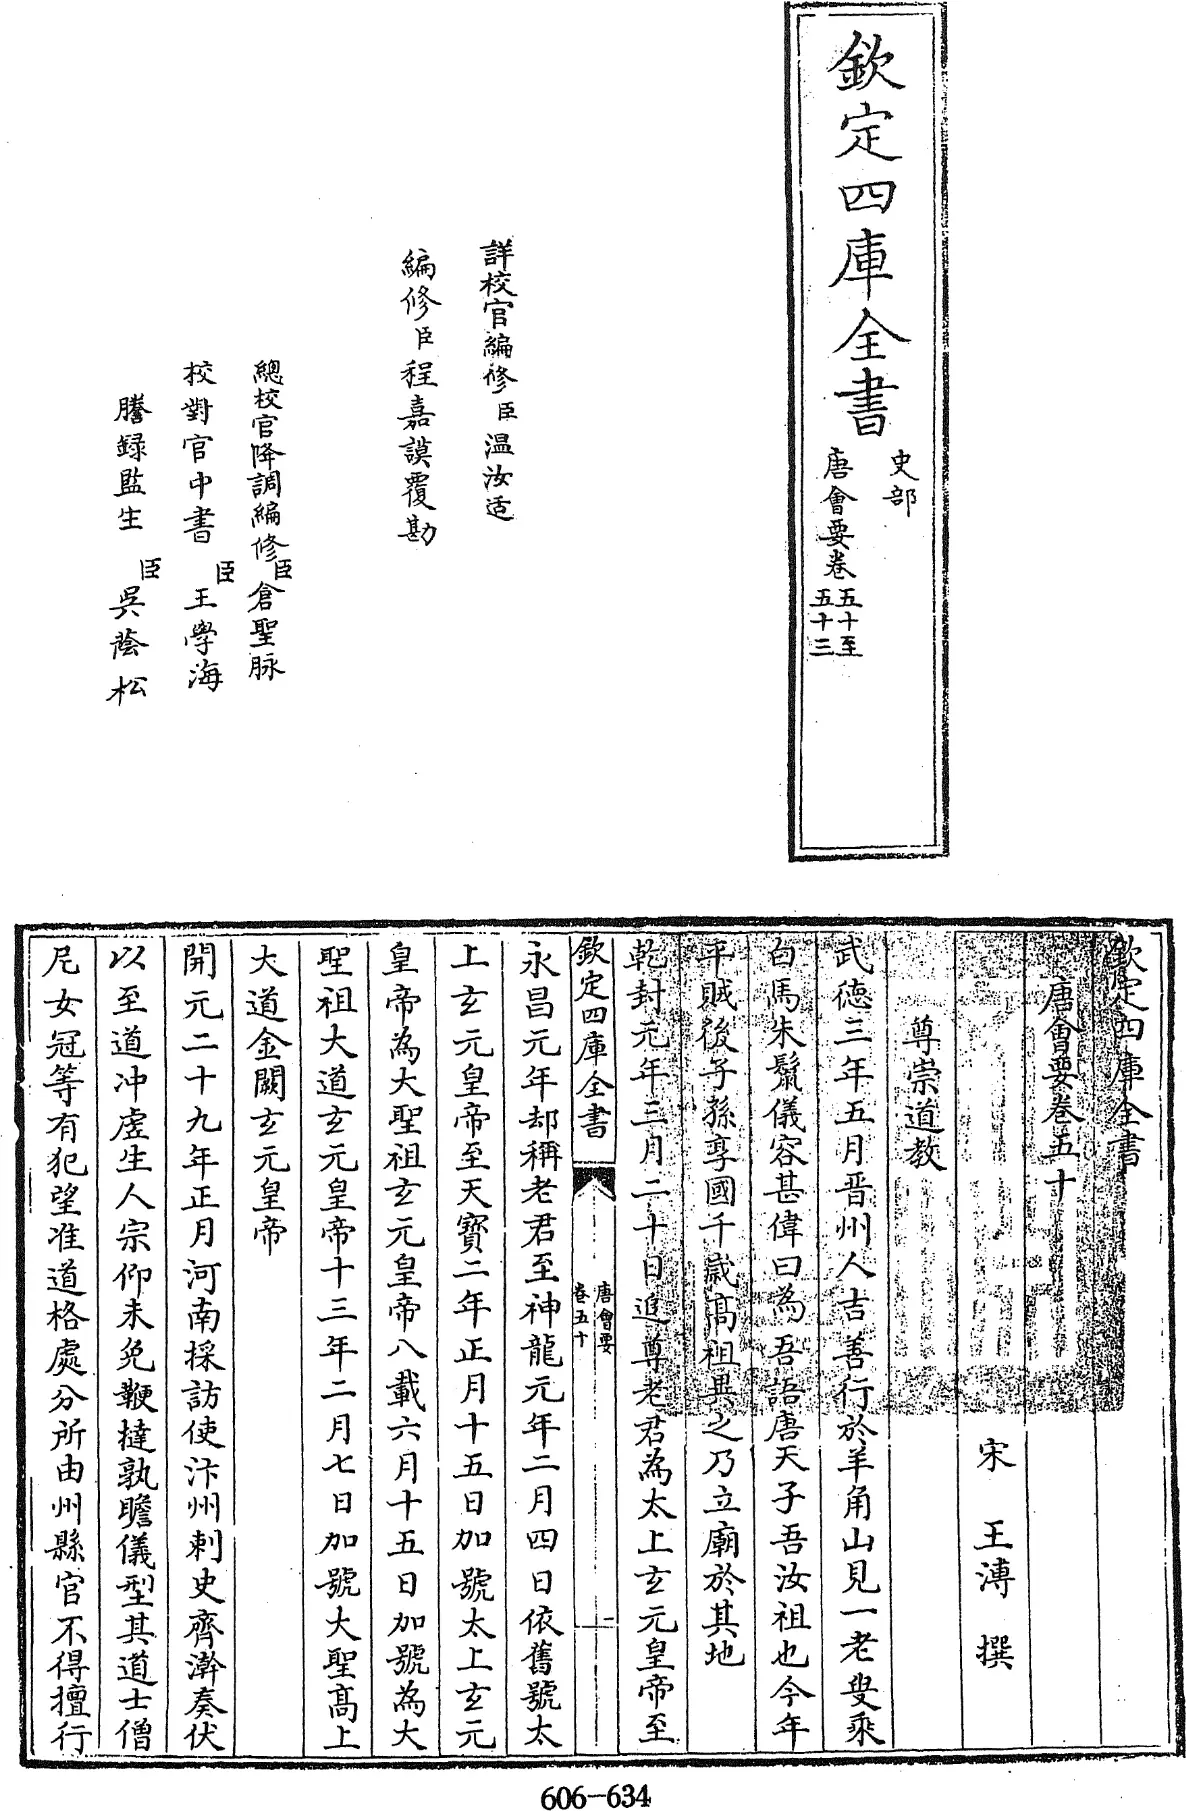 欽定四庫全書
史部
唐會要卷五十至
五十三
詳校官編修臣温汝适
編修臣程嘉謨覆勘
總校官降調編修臣倉聖脉
校對官中書臣王學海
謄録監生臣吳蔭松
欽定四庫全書
唐會要卷五十
宋王溥撰
尊崇道教
武德三年五月晋州人吉善行於羊角山見一老叟乘
白馬朱鬛儀容甚偉曰為吾語唐天子吾汝祖也今年
平賊後子孫享國千歳髙祖異之乃立廟於其地
乾封元年三月二十日追尊老君為太上玄元皇帝至
欽定四庫全書
唐會要
卷五十
永昌元年却稱老君至神龍元年二月四日依舊號太
上玄元皇帝至天寳二年正月十五日加號太上玄元
皇帝為大聖祖玄元皇帝八載六月十五日加號為大
聖祖大道玄元皇帝十三年二月七日加號大聖髙上
大道金闕玄元皇帝
開元二十九年正月河南採訪使汴州刺史齊澣奏伏
以至道冲虚生人宗仰未免鞭撻孰瞻儀型其道士僧
尼女冠等有犯望准道格處分所由州縣官不得擅行
606-634